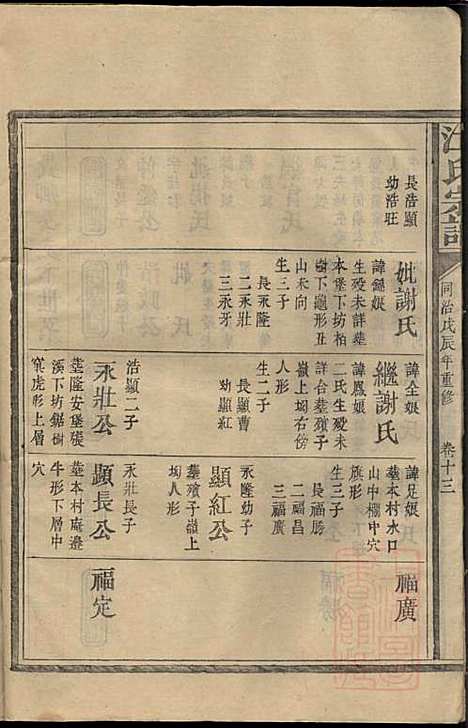 江氏宗譜
同治戊辰年重修
卷十三
長浩顯
幼浩旺
妣謝氏
諱錦娘
生歿未詳塟
本堡下坊柏
樹下龜形丑
山未向
生三子
長永隆
二永壯
三永牙
諱全娘
繼謝氏
諱鳳娘
二氏生歿未
詳合塟殯子
嶺上坳右傍
生二子
長顯曹
幼顯紅
浩顯二子
永壯公
塟隆安堡張
溪下坊鋸樹
窠虎形上層
諱足娘
塟本村水口
山中欄中穴
旗形
生三子
長福勝
二福昌
三福廣
永隆幼子
顯紅公
塟殯子嶺上
坳人形
永壯長子
顯長公
塟本村處邉
牛形下層中
穴
福廣
福定